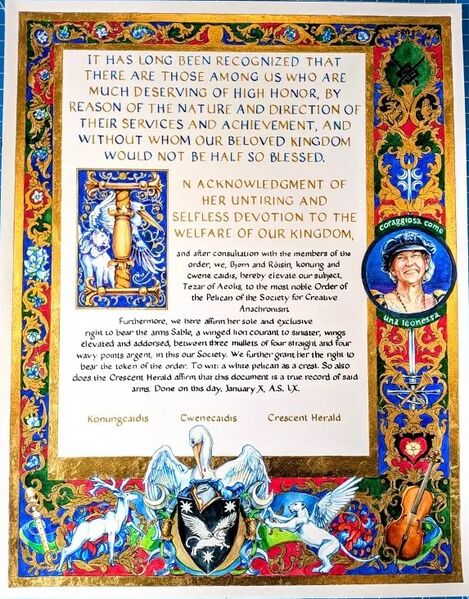 IT HAS LONG BEEN RECOGNIZED THAT
THERE ARE THOSE AMONG US WHO ARE
MUCH DESERVING OF HIGH HONOR, BY
REASON OF THE NATURE AND DIRECTION OF
THEIR SERVICES AND ACHIEVEMENT, AND
WITHOUT WHOM OUR BELOVED KINGDOM
WOULD NOT BE HALF SO BLESSED.
IN ACKNOWLEDGMENT OF
HER UNTIRING AND
SELFLESS DEVOTION TO THE
WELFARE OF OUR KINGDOM,
and after consultation with the members of the
order, we, Bjorn and Róisin, konung and
cwene caidis, hereby elevate our subject,
Tezar of Aeolis, to the most noble Order of
the Pelican of the Society for Creative
Anachronism.
Furthermore, we here affirm her sole and exclusive
right to bear the arms Sable, a winged lion courant to sinister, wings
elevated and addorsed, between three mullets of four straight and four
wavy points argent, in this our Society. We further grant her the right to
bear the token of the order. To wit: a white pelican as a crest. So also
does the Crescent Herald affirm that this document is a true record of said
arms. Done on this day, January X, A.S. LX.
Konungcaidis Cwenecaidis Crescent Herald
coraggiosa come
una leonessa